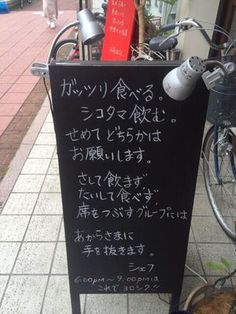 ガッツリ食べる。
シコタマ飲む。
せめてどちらかは
お願いします。
さして飲まず
たいして食べず
席をつぶすグループには
あからさまに
手を抜きます。
シェフ
6:00pm〜9:00pmは
これでヨロシク!!